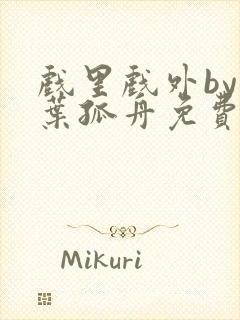 戲里戲外by
葉孤舟免費
Mikuri